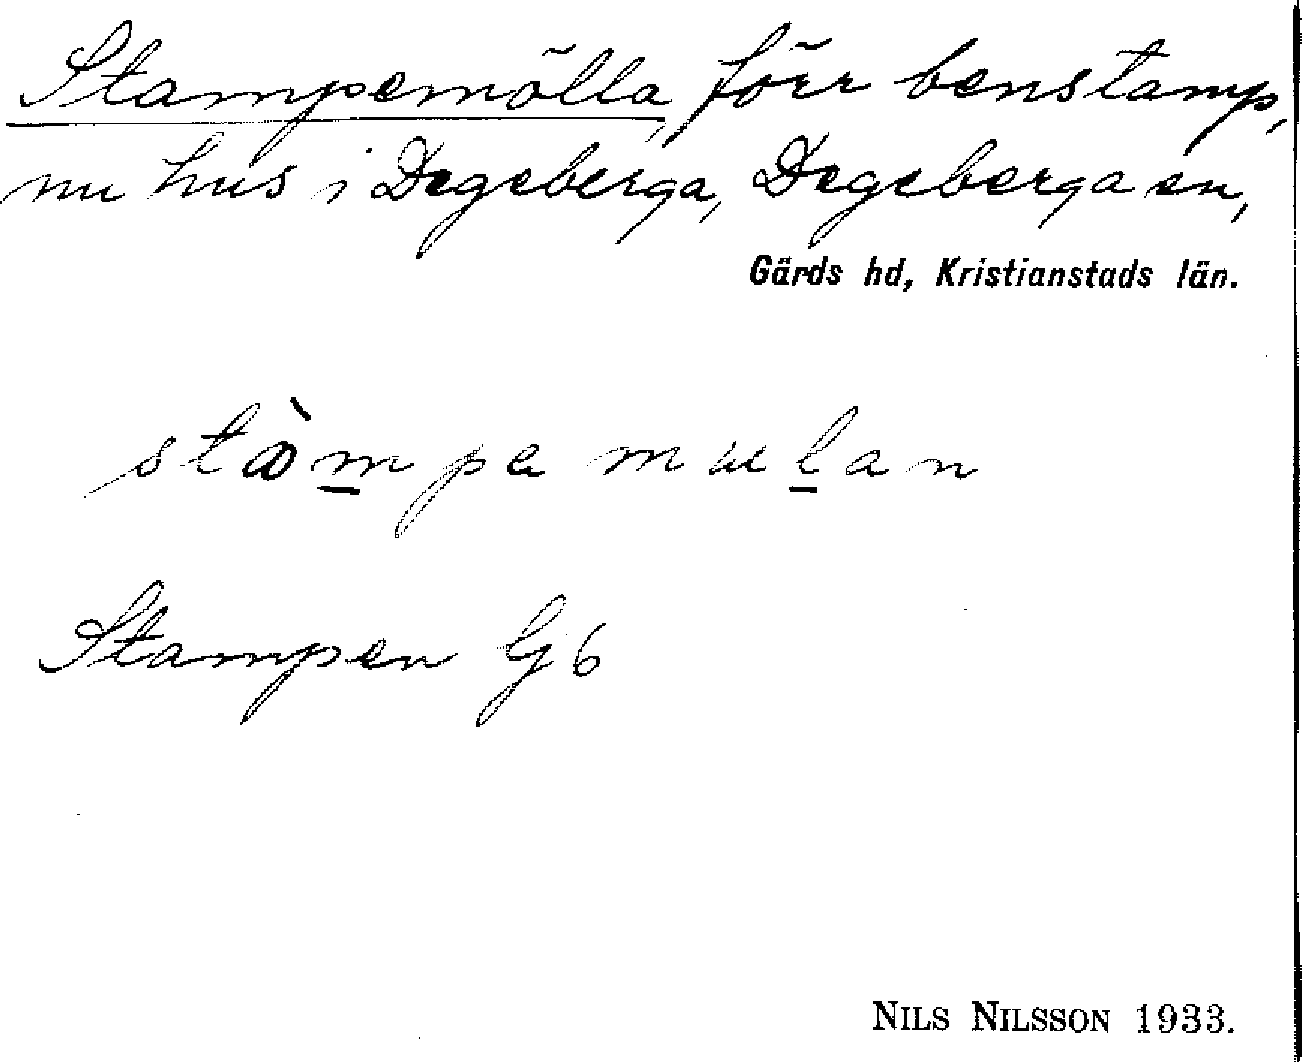 Stampemölla, förr benstamp,
nu hus i Degeberga, Degeberga sn,
Gärds hd, Kristianstads län.
Stampen G6
NILS NILSSON 1933.